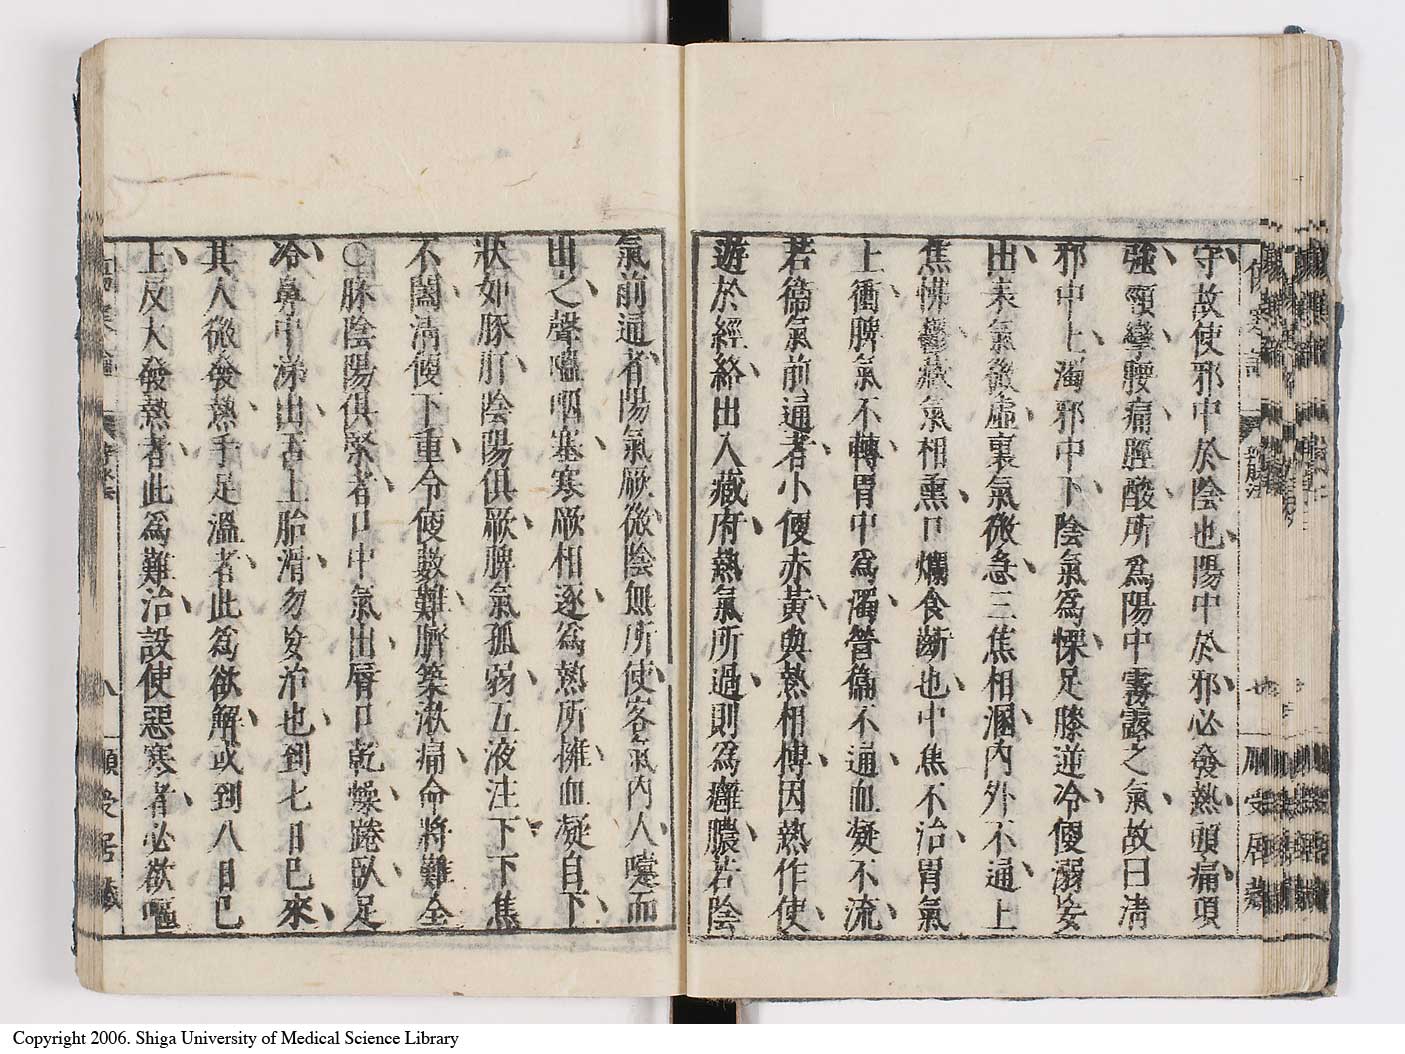 守故使邪中於陰也陽中於邪必發熱頭痛項
強頸攣腰痛脛酸所爲陽中霧露之氣故曰淸
邪中上濁邪中下陰氣爲慄足膝逆冷便溺妄
出表氣微虛裏氣微急三焦相溷內外不通上
焦怫鬱藏氣相熏口爛食齗也中焦不治胃氣
上衝脾氣不轉胃中爲濁營衞不通血凝不流
若衞氣前通者小便赤黃與熱相摶因熱作使
遊於經絡出入藏府熱氣所過則爲癰膿若陰
氣前通者陽氣厥微陰無所使客氣內入嚏而
出之聲嗢咽塞寒厥相逐爲熱所擁血凝自下
狀如豚肝陰陽俱厥脾氣孤弱五液注下下焦
不闔淸便下重令便數難臍築湫痛命將難全
○脉陰陽俱緊者口中氣出唇口乾燥踡臥足
冷鼻中涕出舌上胎滑勿妄治也到七日已來
其人微發熱手足溫者此爲欲解或到八日已
上反大發熱者此爲難治設使惡寒者必欲嘔
Copyright 2006. Shiga University of Medical Science Library